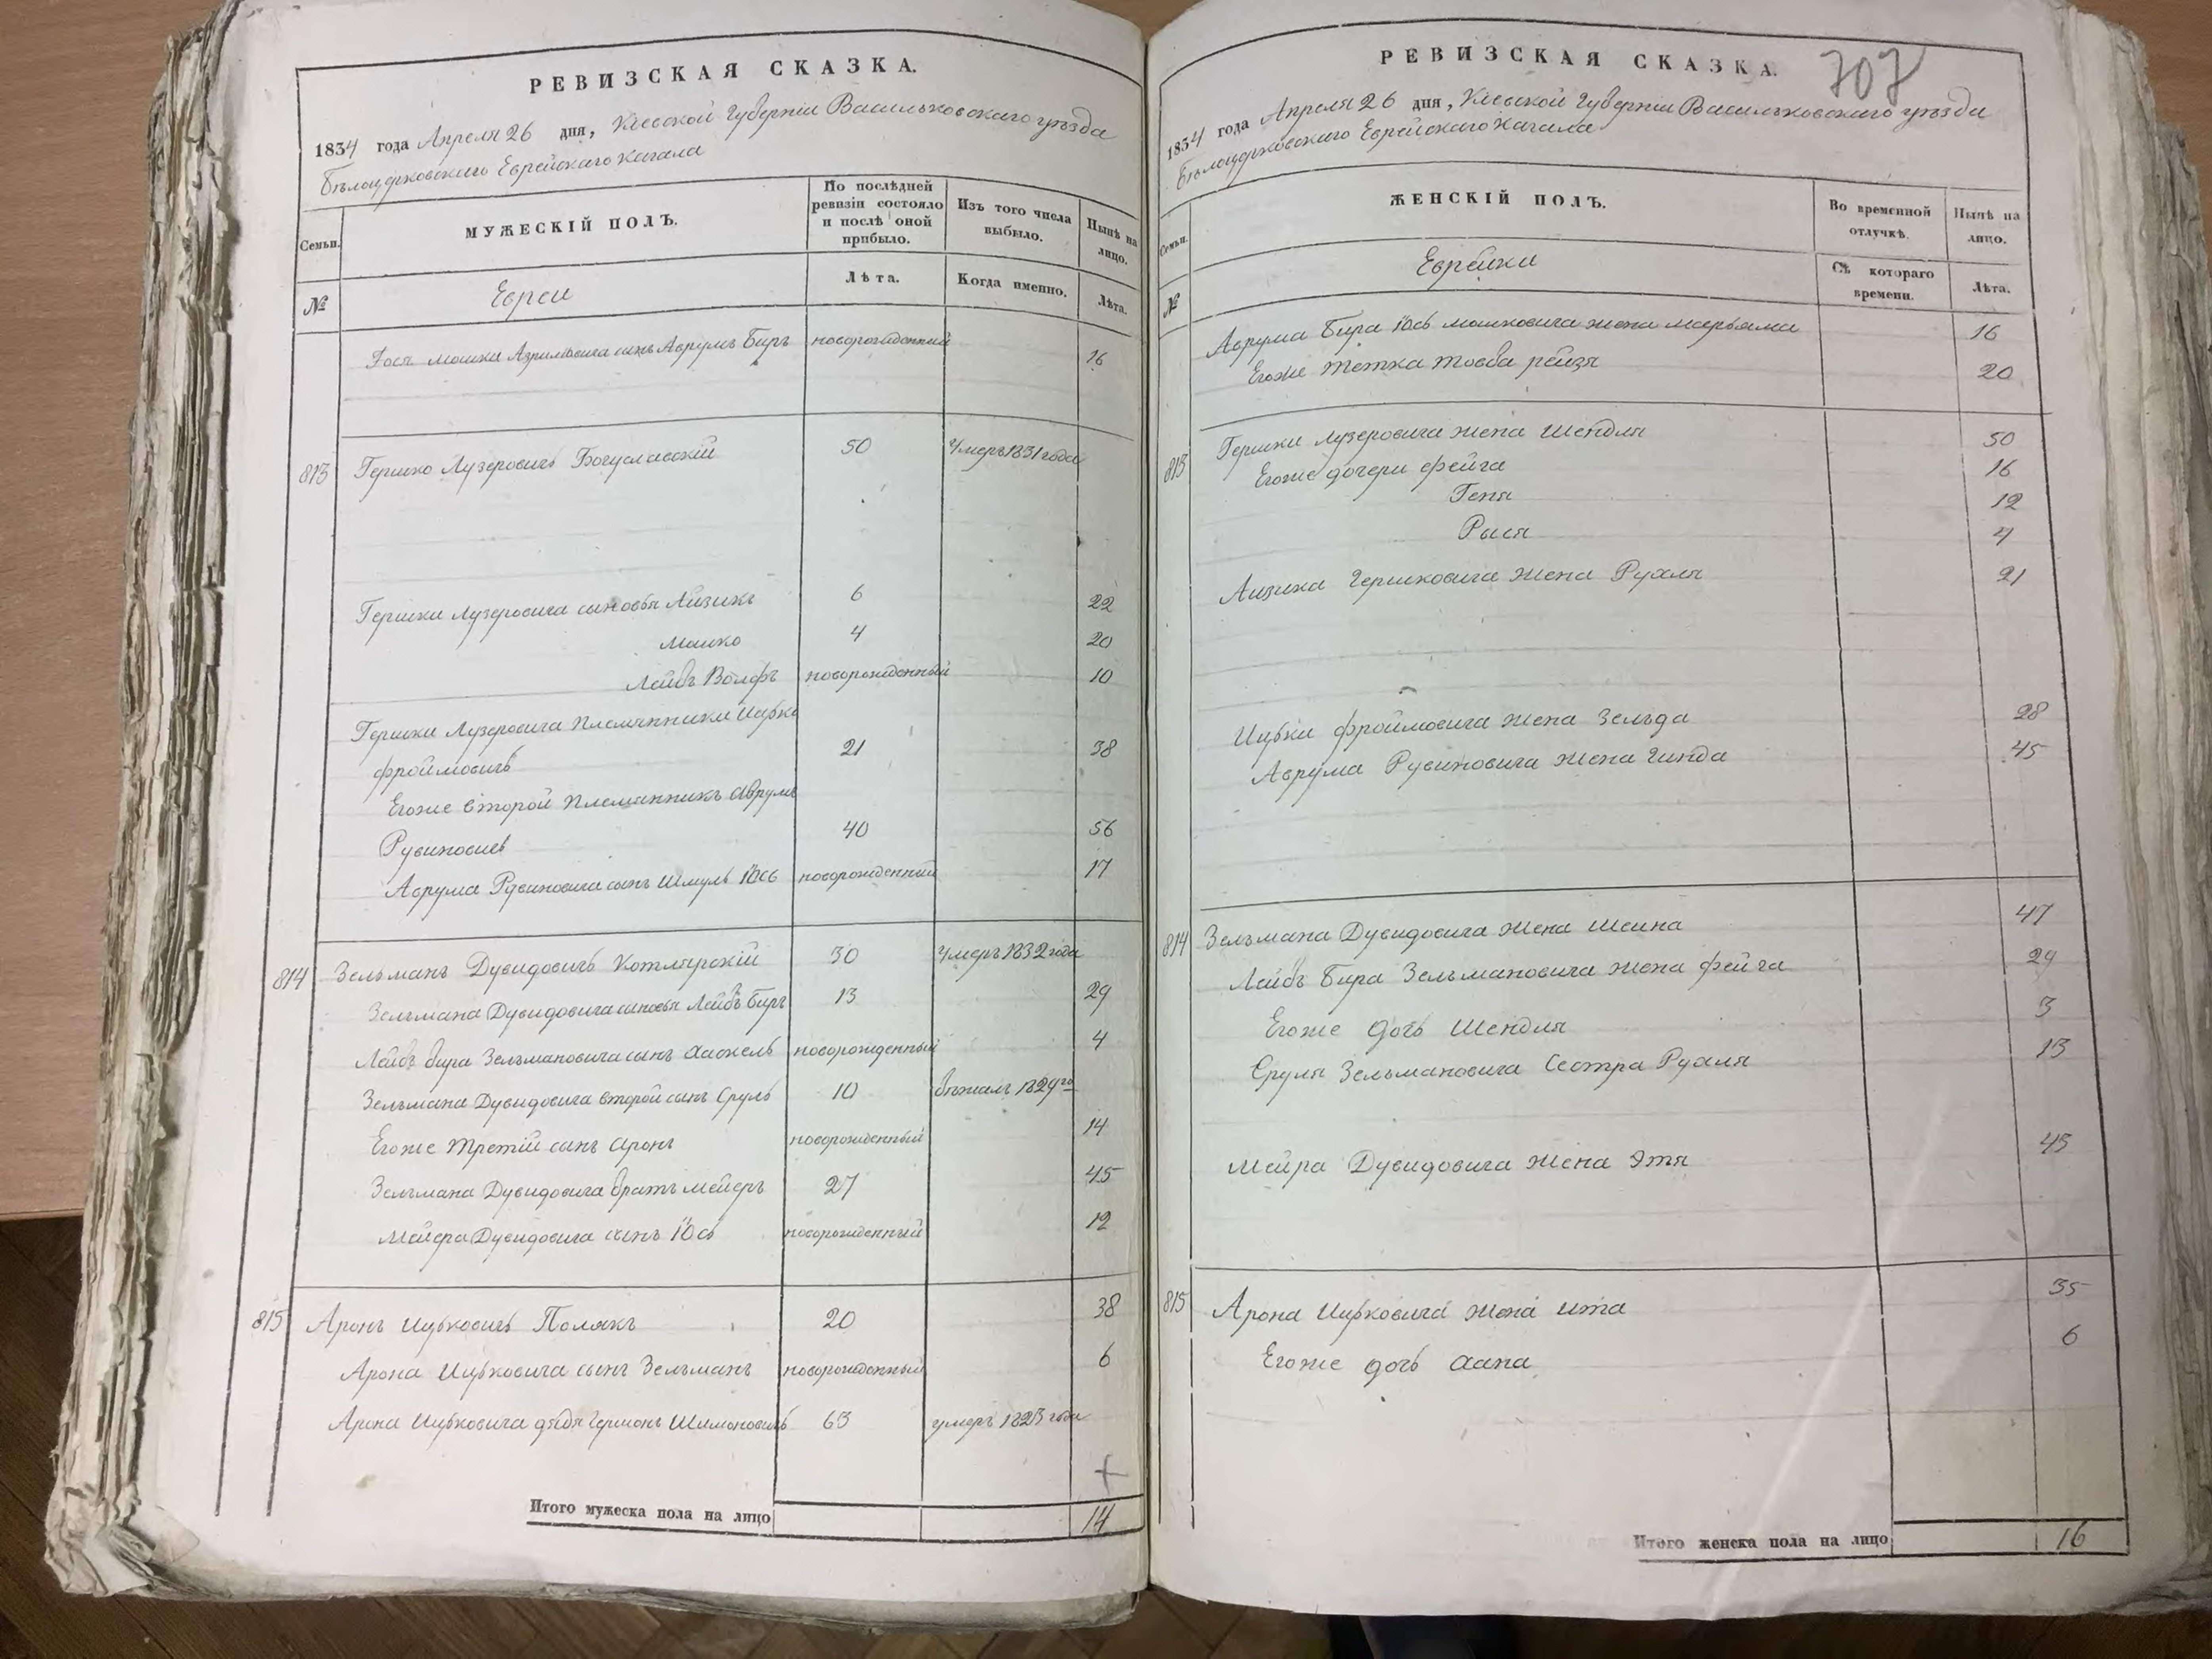 РЕВИЗСКАЯ СКАЗКА.
1834 года Апреля 26 дня, Киевской Губерніи Васильковскаго уѣзда
Бѣлоцерковскаго Еврейскаго Кагала
Семьи.
МУЖЕСКІЙ ПОЛЪ.
По послѣдней ревизіи состояло и послѣ оной прибыло.
Изъ того числа выбыло.
Нынѣ на лицо.
№
Евреи
Лѣта.
Когда именно.
Лѣта.
Мошки Азриловича сынъ Аврумъ Беръ новорожденный 16
813 Гершко Лузеровичъ Богуславскій 50 Умеръ 1831 года
Гершки Лузеровича сыновья Айзикъ 6 22
Мошко 4 20
Лейбъ Волфъ новорожденный 10
Гершки Лузеровича племянники Ицко
Фроймовичъ 21 38
Егоже второй племянникъ Аврумъ
Рувиновичъ 40 56
Аврума Рувиновича сынъ Шмуль Іось новорожденный 17
814 Зельманъ Дувидовичъ Котлярскій 30 Умеръ 1832 года
Зельмана Дувидовича сыновья Лейбъ Беръ 13 29
Лейбъ Бера Зельмановича сынъ Хаскель новорожденный 4
Зельмана Дувидовича второй сынъ Сруль 10 бѣжалъ 1829 го
Егоже третій сынъ Аронъ новорожденный 14
Зельмана Дувидовича братъ Мейеръ 27 45
Мейера Дувидовича сынъ Іось новорожденный 12
815 Аронъ Ицковичъ Полякъ 20 38
Арона Ицковича сынъ Зельманъ новорожденный 6
Арона Ицковича дядя Гершонъ Шимоновичъ 63 умеръ 1823 года
Итого мужеска пола на лицо 14
РЕВИЗСКАЯ СКАЗКА.
707
1834 года Апреля 26 дня, Киевской Губерніи Васильковскаго уѣзда
Бѣлоцерковскаго Еврейскаго Кагала
Семьи.
ЖЕНСКІЙ ПОЛЪ.
Во временной отлучкѣ.
Нынѣ на лицо.
№
Еврейки
Съ котораго времени.
Лѣта.
Аврума Бера Іось Мошковича жена Марьяма 16
Егоже тетка Товба Рейзя 20
813 Гершки Лузеровича жена Шендля 50
Егоже дочери Фейга 16
Геня 12
Рыся 4
Айзика Гершковича жена Рухля 21
Ицки Фроймовича жена Зельда 28
Аврума Рувиновича жена Гинда 45
814 Зельмана Дувидовича жена Шейна 47
Лейбъ Бера Зельмановича жена Фейга 29
Егоже дочь Шендля 3
Сруля Зельмановича Сестра Рухля 13
Мейра Дувидовича жена Этя 45
815 Арона Ицковича жена Ита 35
Егоже дочь Хана 6
Итого женска пола на лицо 16